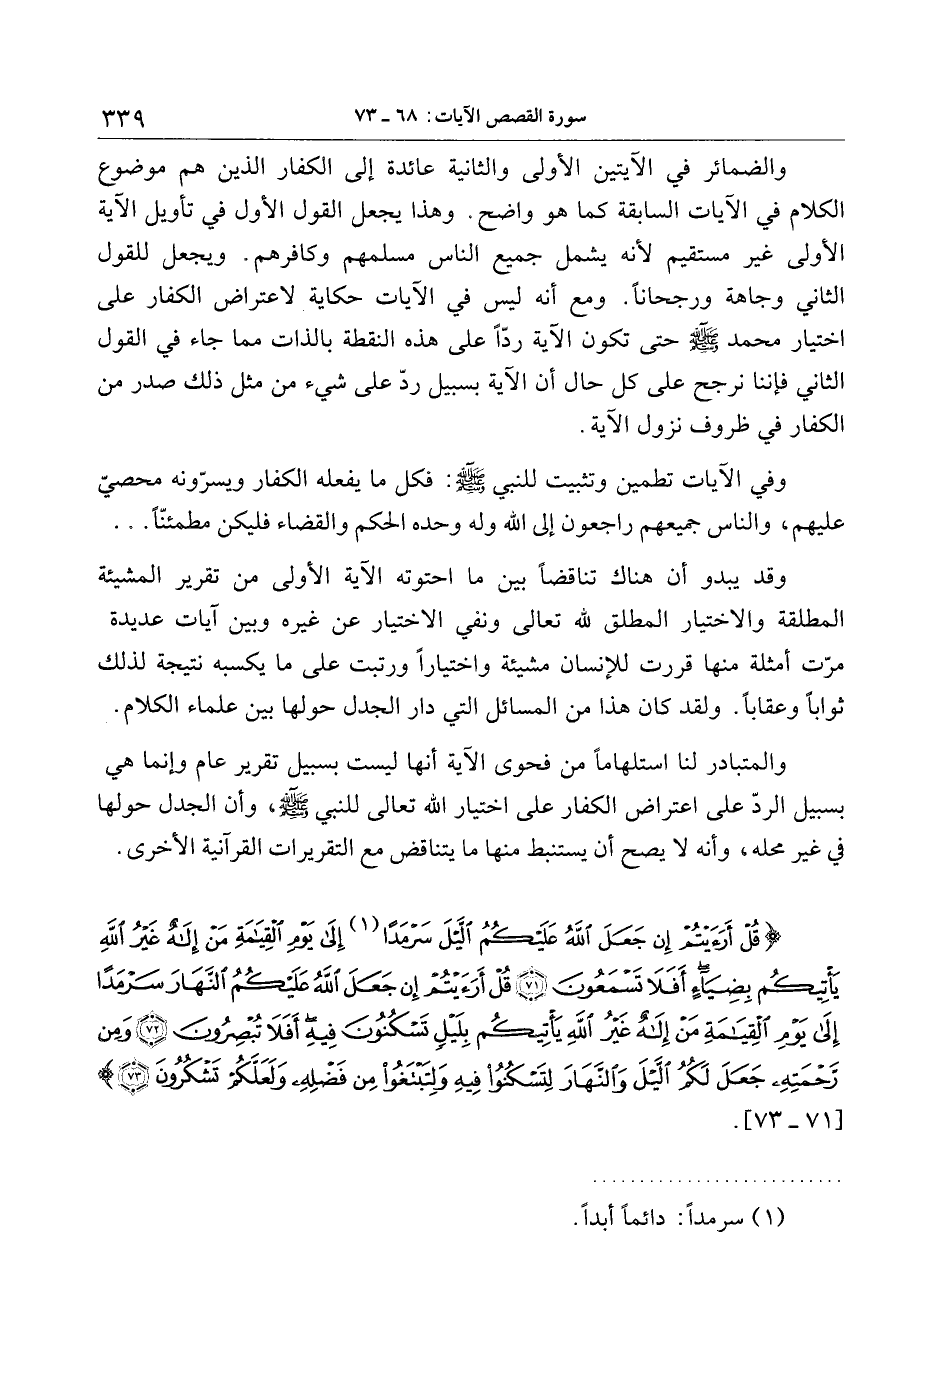 سورة القصص الآيات: ٦٨ ـ ٧٣ ٣٣٩
والضمائر في الآيتين الأولى والثانية عائدة إلى الكفار الذين هم موضوع
الكلام في الآيات السابقة كما هو واضح. وهذا يجعل القول الأول في تأويل الآية
الأولى غير مستقيم لأنه يشمل جميع الناس مسلمهم وكافرهم. ويجعل للقول
الثاني وجاهة ورجحاناً. ومع أنه ليس في الآيات حكاية لاعتراض الكفار على
اختيار محمد ﷺ حتى تكون الآية ردّاً على هذه النقطة بالذات مما جاء في القول
الثاني فإننا نرجح على كل حال أن الآية بسبيل ردّ على شيء من مثل ذلك صدر من
الكفار في ظروف نزول الآية.
وفي الآيات تطمين وتثبيت للنبي ﷺ: فكل ما يفعله الكفار ويسرّونه محصيّ
عليهم، والناس جميعهم راجعون إلى الله وله وحده الحكم والقضاء فليكن مطمئنّاً...
وقد يبدو أن هناك تناقضاً بين ما احتوته الآية الأولى من تقرير المشيئة
المطلقة والاختيار المطلق لله تعالى ونفي الاختيار عن غيره وبين آيات عديدة
مرّت أمثلة منها قررت للإنسان مشيئة واختياراً ورتبت على ما يكسبه نتيجة لذلك
ثواباً وعقاباً. ولقد كان هذا من المسائل التي دار الجدل حولها بين علماء الكلام.
والمتبادر لنا استلهاماً من فحوى الآية أنها ليست بسبيل تقرير عام وإنما هي
بسبيل الردّ على اعتراض الكفار على اختيار الله تعالى للنبي ﷺ، وأن الجدل حولها
في غير محله، وأنه لا يصح أن يستنبط منها ما يتناقض مع التقريرات القرآنية الأخرى.
﴿ قُلْ أَرَءَيْتُمْ إِن جَعَلَ ٱللَّهُ عَلَيْكُمُ ٱلَّيْلَ سَرْمَدًا(١) إِلَىٰ يَوْمِ ٱلْقِيَٰمَةِ مَنْ إِلَٰهٌ غَيْرُ ٱللَّهِ
يَأْتِيكُم بِضِيَآءٍ ۖ أَفَلَا تَسْمَعُونَ ٧١ قُلْ أَرَءَيْتُمْ إِن جَعَلَ ٱللَّهُ عَلَيْكُمُ ٱلنَّهَارَ سَرْمَدًا
إِلَىٰ يَوْمِ ٱلْقِيَٰمَةِ مَنْ إِلَٰهٌ غَيْرُ ٱللَّهِ يَأْتِيكُم بِلَيْلٍ تَسْكُنُونَ فِيهِ ۖ أَفَلَا تُبْصِرُونَ ٧٢ وَمِن
رَّحْمَتِهِۦ جَعَلَ لَكُمُ ٱلَّيْلَ وَٱلنَّهَارَ لِتَسْكُنُوا۟ فِيهِ وَلِتَبْتَغُوا۟ مِن فَضْلِهِۦ وَلَعَلَّكُمْ تَشْكُرُونَ ٧٣ ﴾
[٧١ ـ ٧٣].
(١) سرمداً: دائماً أبداً.